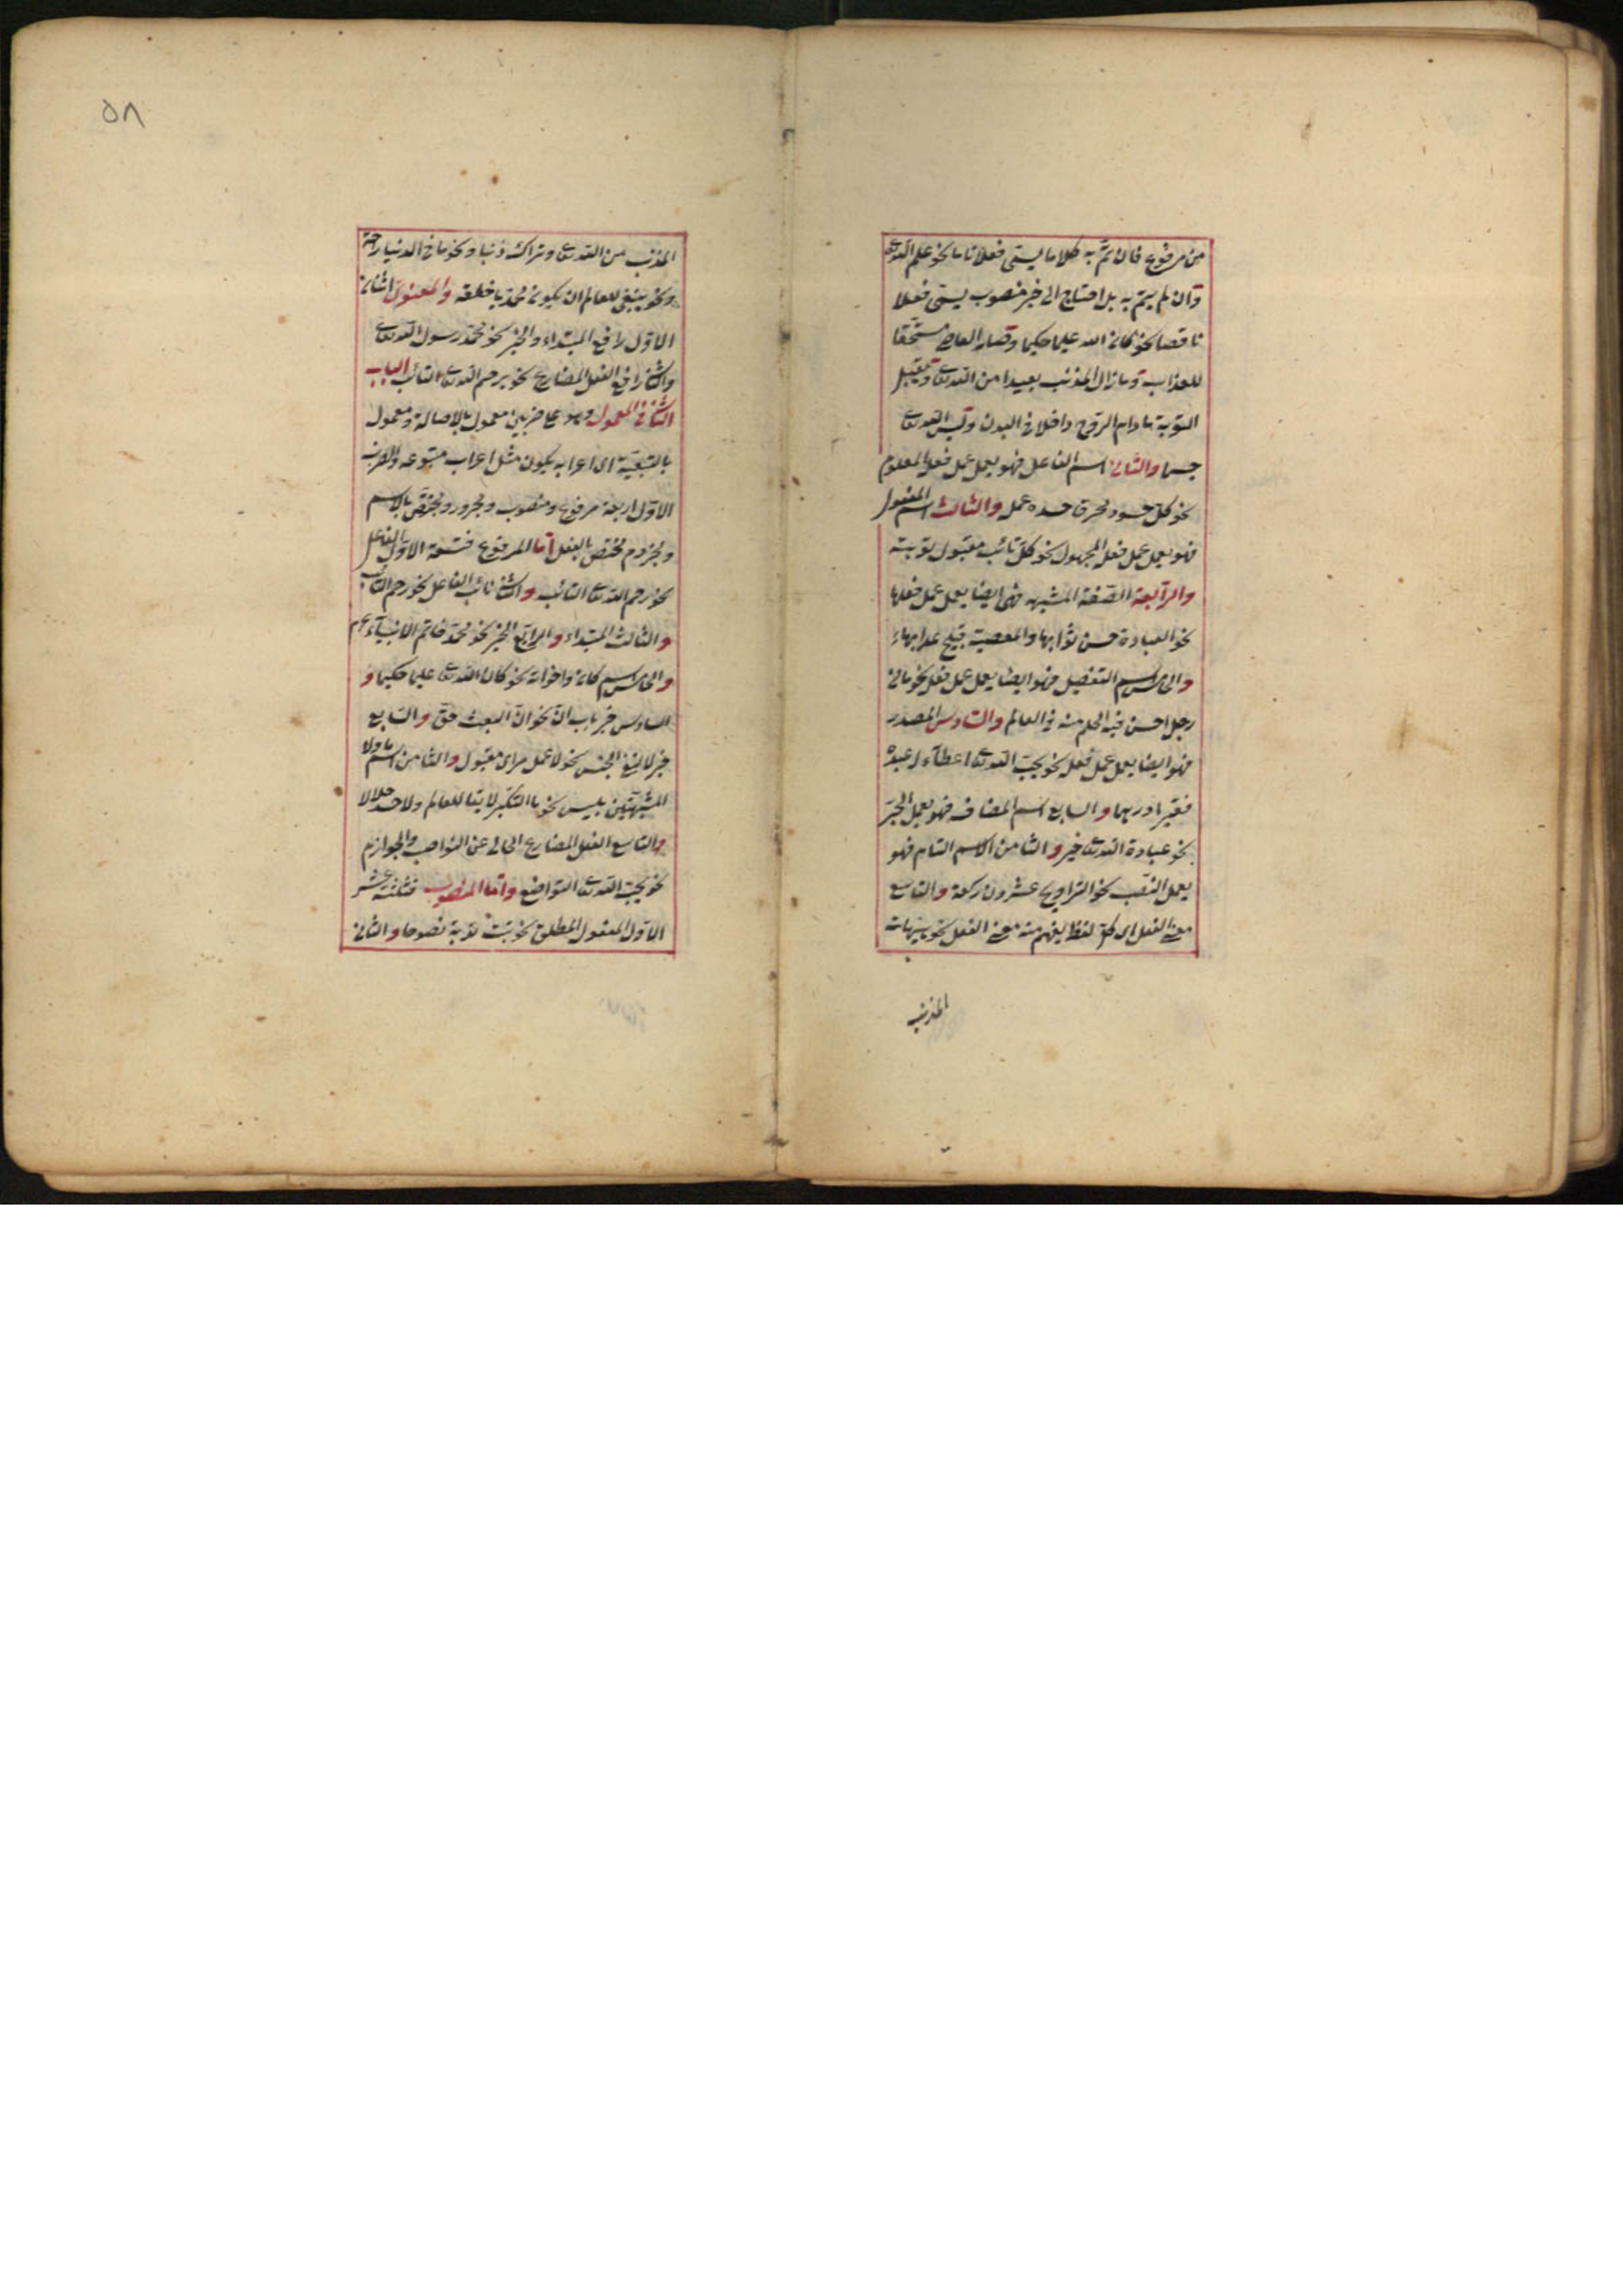 من مرفوع فان تم به كلاما يسمى فعلا تاما نحو علم الله تعالى
وان لم يتم به بل احتاج الى خبر منصوب يسمى فعلا
ناقصا نحو كان الله عليما حكيما وصار العاصى مستحقا
للعذاب وما زال المذنب بعيدا من الله تعالى وتقبل
التوبة ما دام الروح داخلا فى البدن وليس الله تعالى
جسما والثانى اسم الفاعل فهو يعمل عمل فعله المعلوم
نحو كل حسود محرق حسده عمله والثالث اسم المفعول
فهو يعمل عمل فعله المجهول نحو كل تائب مقبول توبته
والرابعة الصفة المشبهه فهى ايضا يعمل عمل فعلها
نحو العبادة حسن ثوابها والمعصية قبيح عذابها
والخامس اسم التفضيل فهو ايضا يعمل عمل فعله نحو ما من
رجل احسن فيه الحلم منه فى العالم والسادس المصدر
فهو ايضا يعمل عمل فعله نحو يحب الله تعالى اعطاء له عبده
فقيرا درهما والسابع اسم المضاف فهو يعمل الجر
نحو عبادة الله تعالى خير والثامن الاسم التام فهو
يعمل النصب نحو التراويح عشرون ركعة والتاسع
معنى الفعل اى كل لفظ يفهم منه معنى الفعل نحو هيهات
المذنب
٥٨
المذنب من الله تعالى وتراك ذنبا ونحو ما فى الدنيا راحة
ونحو ينبغى للعالم ان يكون محمديا خلقه والمعنوى اثنان
الاول رافع المبتداء والخبر نحو محمد رسول الله تعالى
والثانى رافع الفعل المضارع نحو يرحم الله تعالى التائب الباب
الثانى فى المعمول وهو على ضربين معمول بالاصالة ومعمول
بالتبعية اى اعرابه يكون مثل اعراب متبوعه والضرب
الاول اربعة مرفوع ومنصوب ومجرور ومختص بالاسم
ومجزوم مختص بالفعل اما المرفوع فتسعة الاول الفاعل
نحو رحم الله تعالى التائب والثانى نائب الفاعل نحو رحم التائب
والثالث المبتداء والرابع الخبر نحو محمد خاتم الانبياء
والخامس اسم كان واخواته نحو كان الله تعالى عليما حكيما و
السادس خبر باب ان نحو ان البعث حق والسابع
خبر لا لنفى الجنس نحو لا عمل مراى مقبول والثامن اسم ما ولا
المشبهتين بليس نحو ما التكبر لايقا للعالم ولا حسد حلالا
والتاسع الفعل المضارع الخالى عن النواصب والجوازم
نحو يحب الله تعالى التواضع واما المنصوب فثلثة عشر
الاول المفعول المطلق نحو تبت توبة نصوحا والثانى